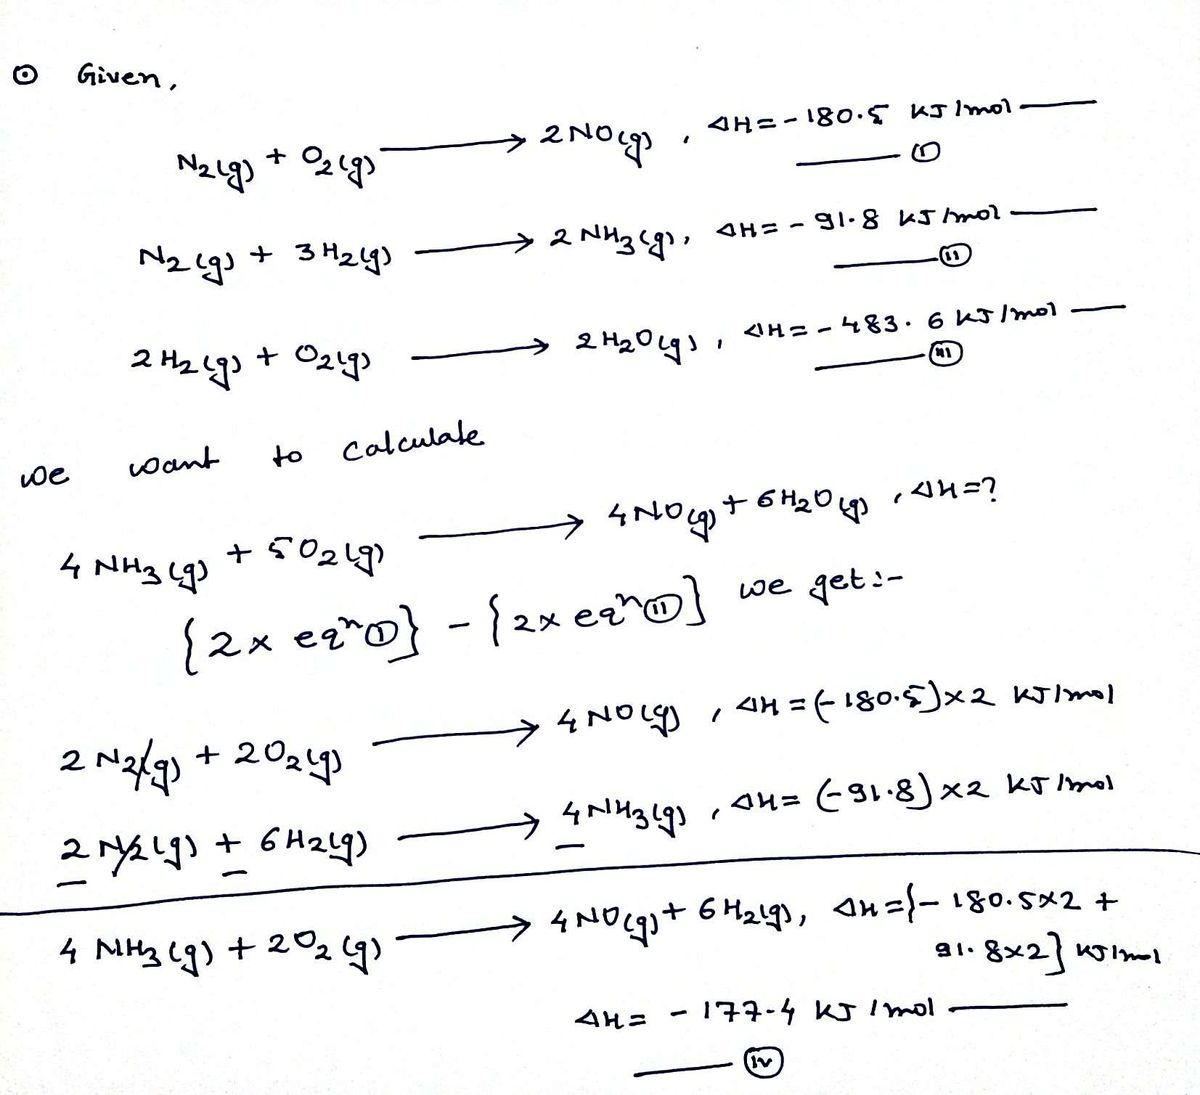 ⊙ Given,
N₂(g) + O₂(g) ⟶ 2NO(g) , ΔH = -180.5 KJ/mol —
— (I)
N₂(g) + 3H₂(g) ⟶ 2NH₃(g), ΔH = -91.8 KJ/mol —
— (II)
2H₂(g) + O₂(g) ⟶ 2H₂O(g) , ΔH = -483.6 KJ/mol —
— (III)
we want to calculate
4NH₃(g) + 5O₂(g) ⟶ 4NO(g) + 6H₂O(g) , ΔH = ?
{2 × eqⁿ (I)} - {2 × eqⁿ (II)} we get :-
2N₂(g) + 2O₂(g) ⟶ 4NO(g) , ΔH = (-180.5)×2 KJ/mol
2N₂(g) + 6H₂(g) ⟶ 4NH₃(g) , ΔH = (-91.8)×2 KJ/mol
4NH₃(g) + 2O₂(g) ⟶ 4NO(g) + 6H₂(g), ΔH = {-180.5×2 +
91.8×2} KJ/mol
ΔH = -177.4 KJ/mol —
— (IV)